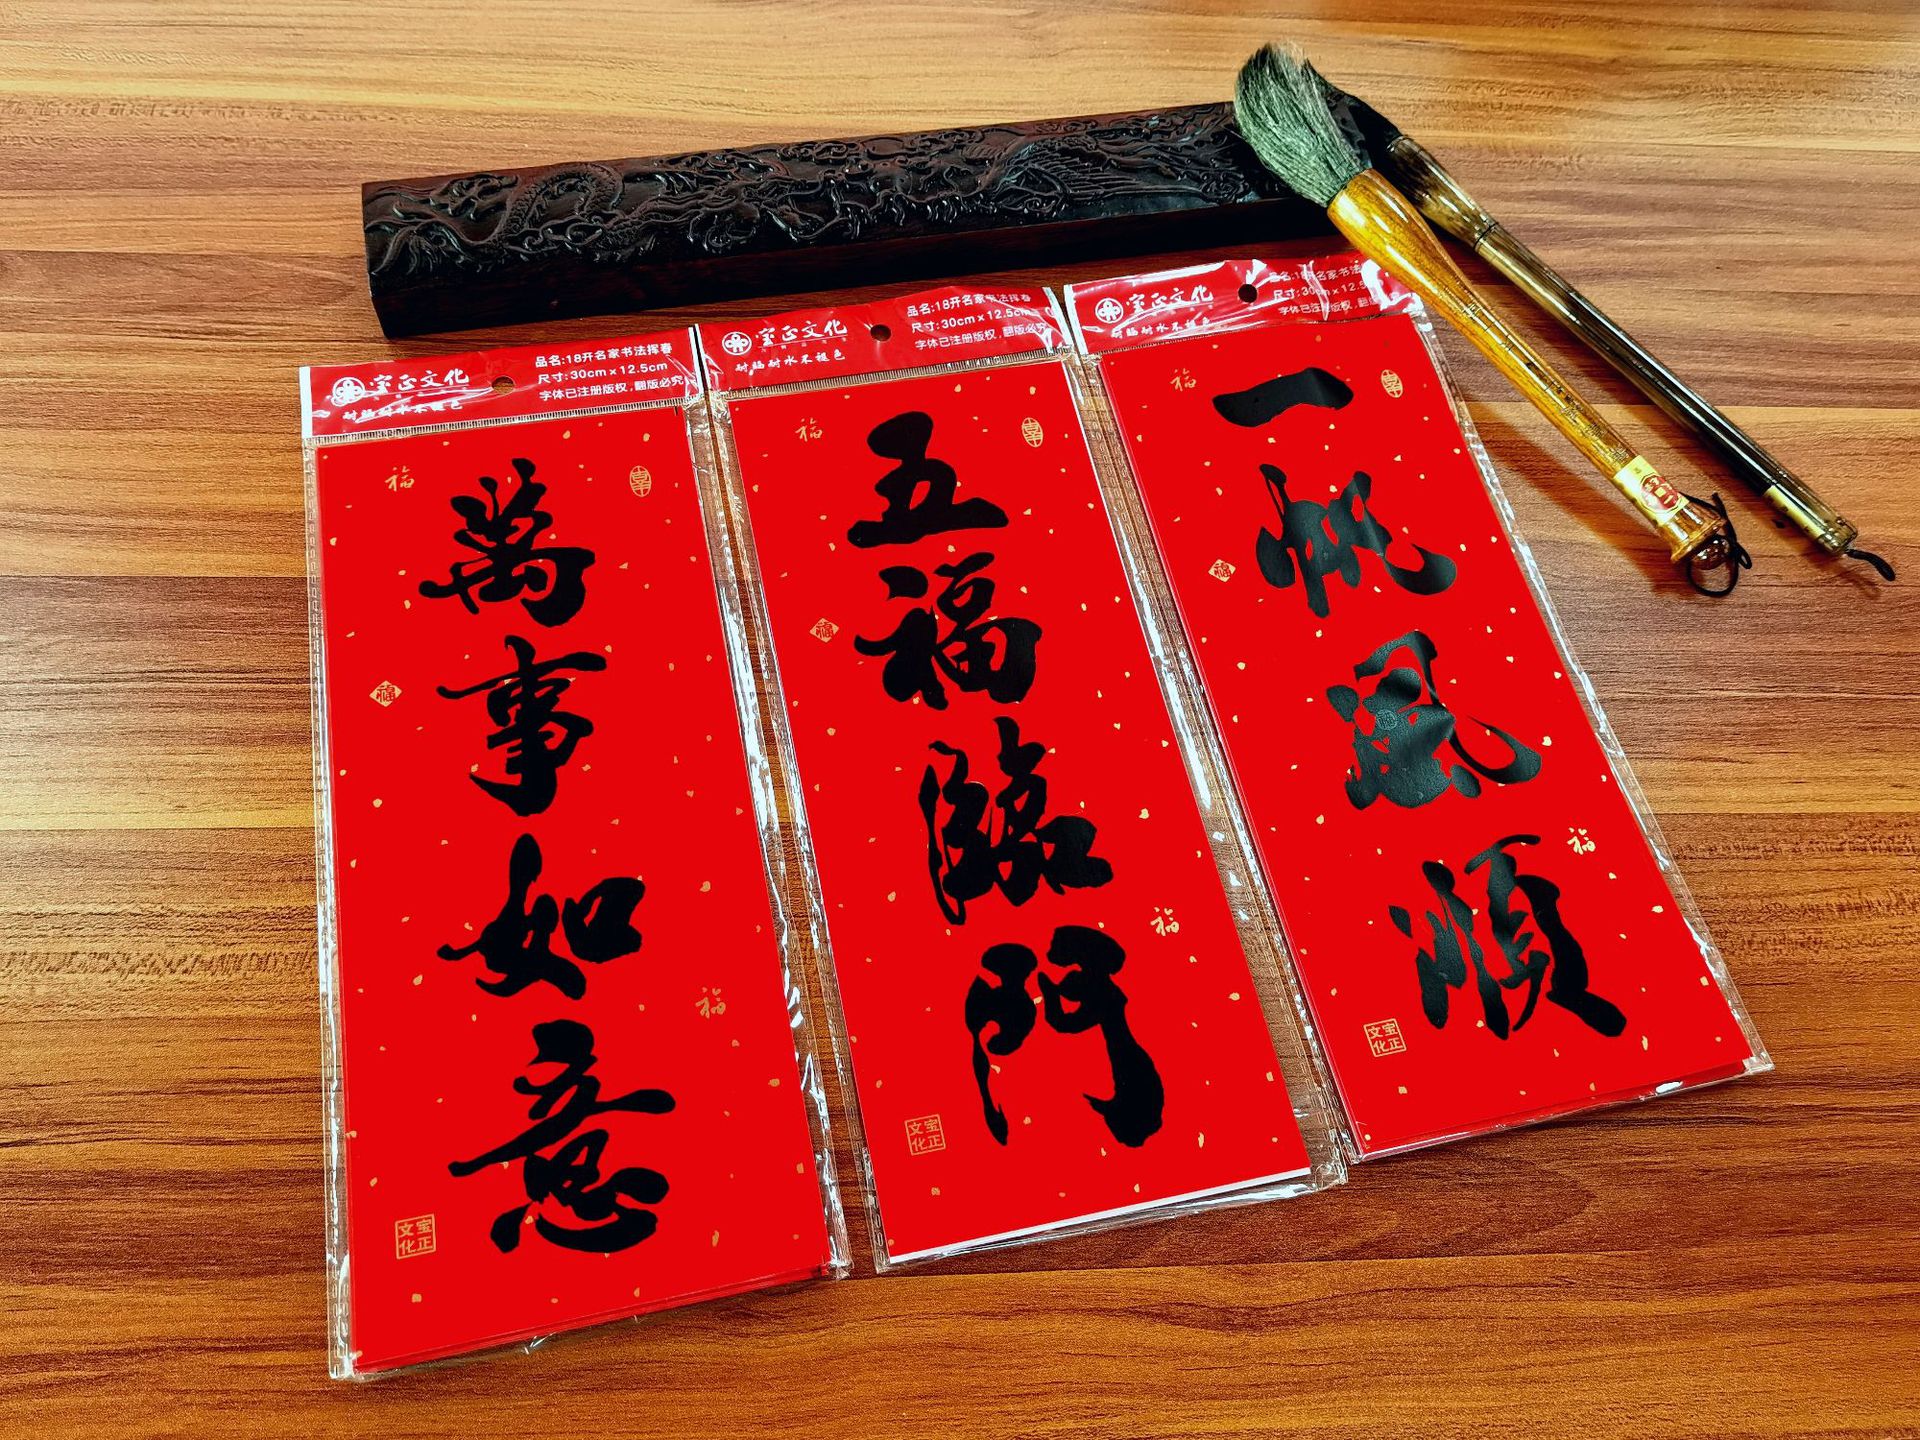 宝正文化
耐晒耐水不褪色
品名:18开名家书法挥春
尺寸:30cm×12.5cm
字体已注册版权,翻版必究
福
萬事如意
福
福
宝正文化
宝正文化
耐晒耐水不褪色
品名:18开名家书法挥春
尺寸:30cm×12.5cm
字体已注册版权,翻版必究
福
五福臨門
福
福
宝正文化
宝正文化
耐晒耐水不褪色
品名:18开名家书法
尺寸:30cm×12.5
字体已注册版权,翻版
福
一帆風順
福
福
宝正文化